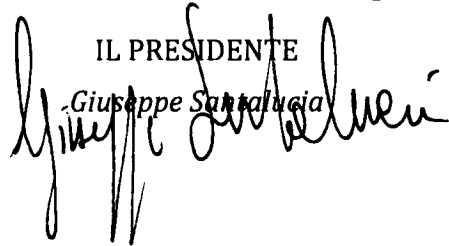 IL PRESIDENTE
Giuseppe Santalucia
Giuseppe Santalucia